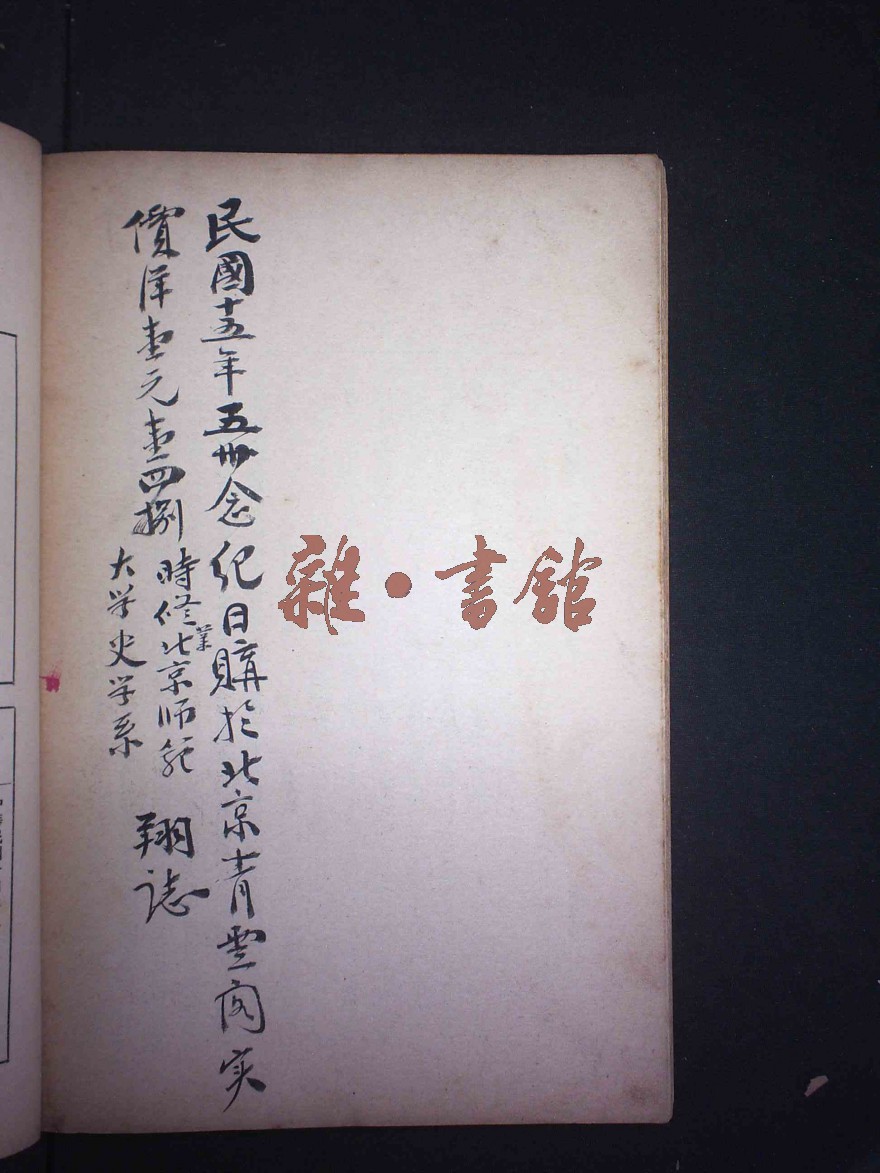 民國十五年五卅念紀日購於北京青雲阁实
價洋壹元壹四捌
時修業北京师範
大学史学系
翔誌
雜·書館